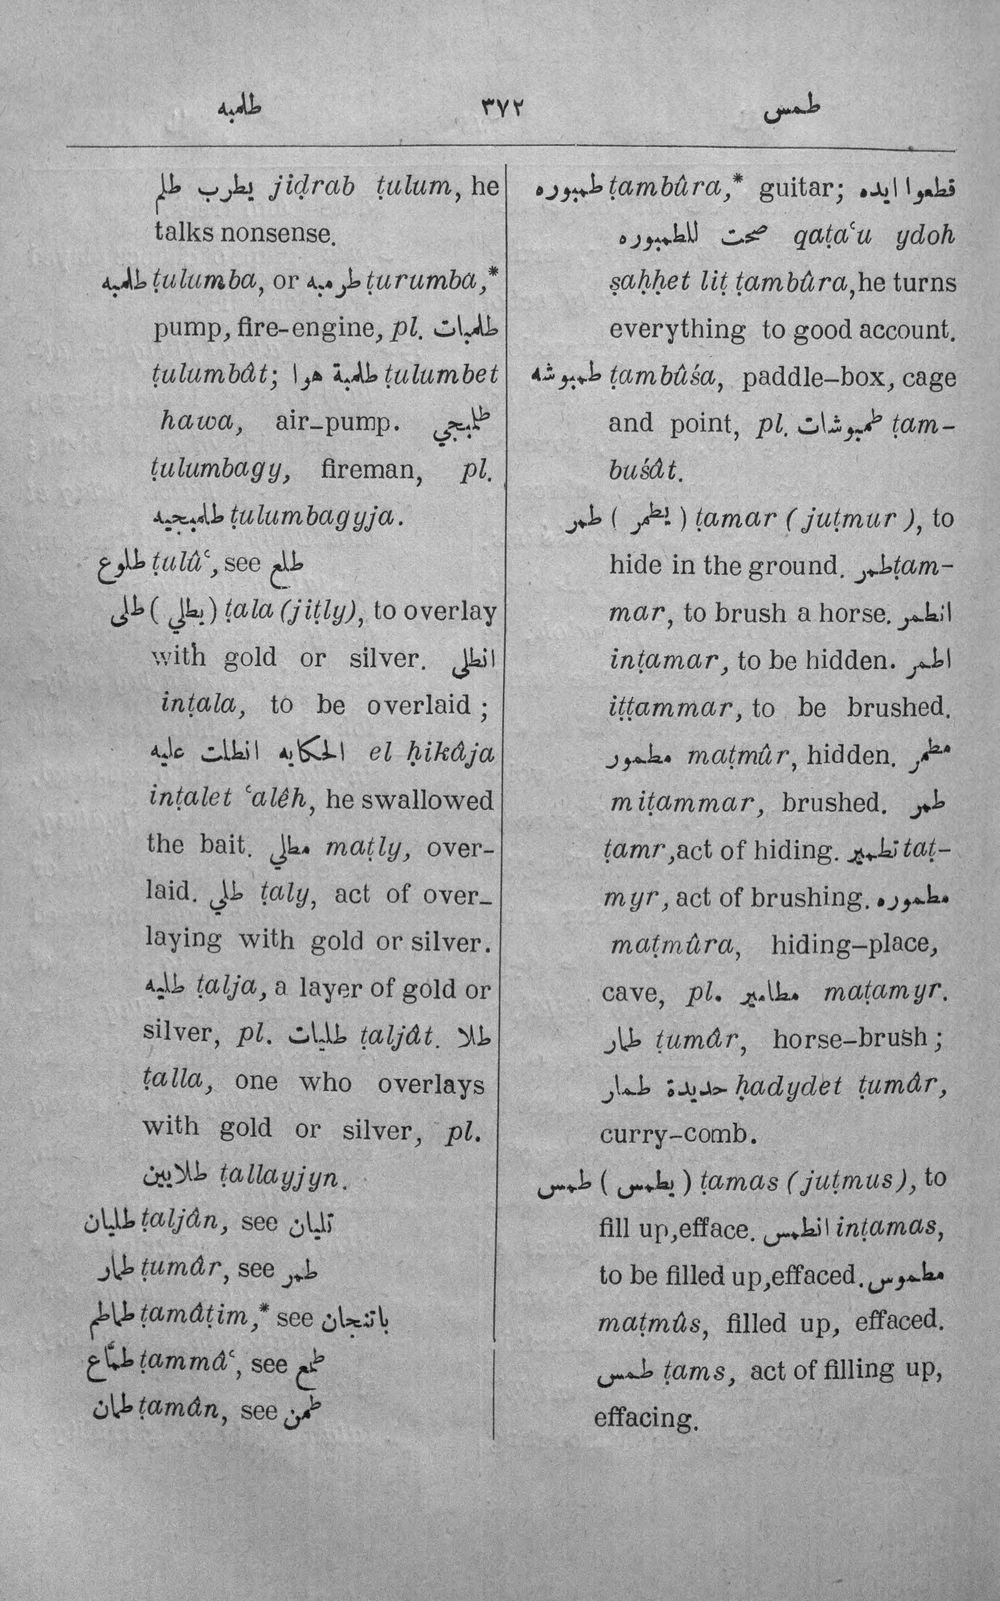 طلمبه ٣٧٢ طمس
يطرب طلم jiḍrab ṭulum, he
talks nonsense.
طلمبه ṭulumba, or طرمبه ṭurumba,*
pump, fire-engine, pl. طلمبات
ṭulumbât; طلمبة هوا ṭulumbet
hawa, air-pump. طلمبجي
ṭulumbagy, fireman, pl.
طلمبجيه ṭulumbagyja.
طلوع ṭulûʿ, see طلع
طلى ( يطلي ) ṭala (jiṭly), to overlay
with gold or silver. انطلى
inṭala, to be overlaid ;
الحكايه انطلت عليه el ḥikâja
inṭalet ʿalêh, he swallowed
the bait. مطلي maṭly, over-
laid. طلي ṭaly, act of over-
laying with gold or silver.
طليه ṭalja, a layer of gold or
silver, pl. طليات ṭaljât. طلا
ṭalla, one who overlays
with gold or silver, pl.
طلايين ṭallayjyn.
طليان ṭaljân, see تليان
طمار ṭumâr, see طمر
طماطم ṭamâṭim,* see باتنجان
طمّاع ṭammâʿ, see طمع
طمان ṭamân, see طمن
طمبوره ṭambûra,* guitar; قطعوا ايده
صحت للطمبوره qaṭaʿu ydoh
ṣaḥḥet liṭ ṭambûra, he turns
everything to good account.
طمبوشه ṭambûśa, paddle-box, cage
and point, pl. طمبوشات ṭam-
buśât.
طمر ( يطمر ) ṭamar ( juṭmur ), to
hide in the ground. طمر ṭam-
mar, to brush a horse. انطمر
inṭamar, to be hidden. اطمر
iṭṭammar, to be brushed.
مطمور maṭmûr, hidden. مطمر
miṭammar, brushed. طمر
ṭamr, act of hiding. تطمير taṭ-
myr, act of brushing. مطموره
maṭmûra, hiding-place,
cave, pl. مطامير maṭamyr.
طمار ṭumâr, horse-brush ;
حديدة طمار ḥadydet ṭumâr,
curry-comb.
طمس ( يطمس ) ṭamas ( juṭmus ), to
fill up, efface. انطمس inṭamas,
to be filled up, effaced. مطموس
maṭmûs, filled up, effaced.
طمس ṭams, act of filling up,
effacing.